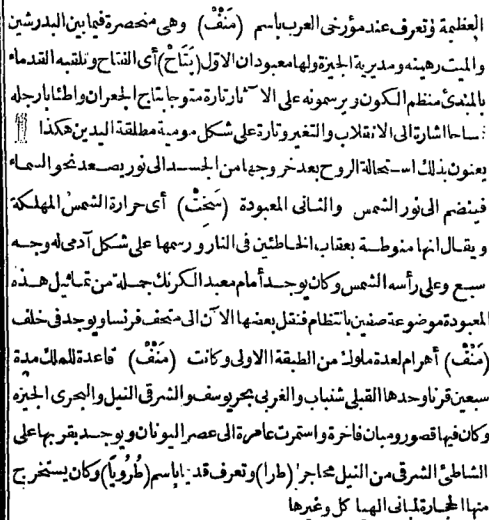 العظيمة وتعرف عند مؤرخى العرب باسم (مَنْفْ) وهى منحصرة فيما بين البدرشين
والميت رهينه ومديرية الجيزة ولها معبودان الاول (پَتَاحْ) أى الفتاح وتلقبه القدماء
بالمبتدئ منظم الكون ويرسمونه على الآثار تارة متوجا بتاج الجعران واطئا بارجله
تمساحا اشارة الى الانقلاب والتغير وتارة على شكل مومية مطلقة اليدين هكذا
يعنون بذلك استحالة الروح بعد خروجها من الجسد الى نور يصعد نحو السماء
فينضم الى نور الشمس والثانى المعبودة (سَخِتْ) أى حرارة الشمس المهلكة
ويقال انها منوطة بعقاب الخاطئين فى النار ورسمها على شكل آدمى له وجه
سبع وعلى رأسه الشمس وكان يوجد أمام معبد الكرنك جملة من تماثيل هذه
المعبودة موضوعة صفين بانتظام فنقل بعضها الآن الى متحف فرنسا ويوجد فى خلف
(مَنْفْ) أهرام لعدة ملوك من الطبقة الاولى وكانت (مَنْفْ) قاعدة للملك مدة
سبعين قرنا وحدها القبلى شنباب والغربى بحر يوسف والشرقى النيل والبحرى الجيزه
وكان فيها قصور ومبان فاخرة واستمرت عامرة الى عصر اليونان ويوجد بقربها على
الشاطئ الشرقى من النيل محاجر (طرا) وتعرف قديما باسم (طُرُويَا) وكان يستخرج
منها الحجارة لمبانى الهياكل وغيرها